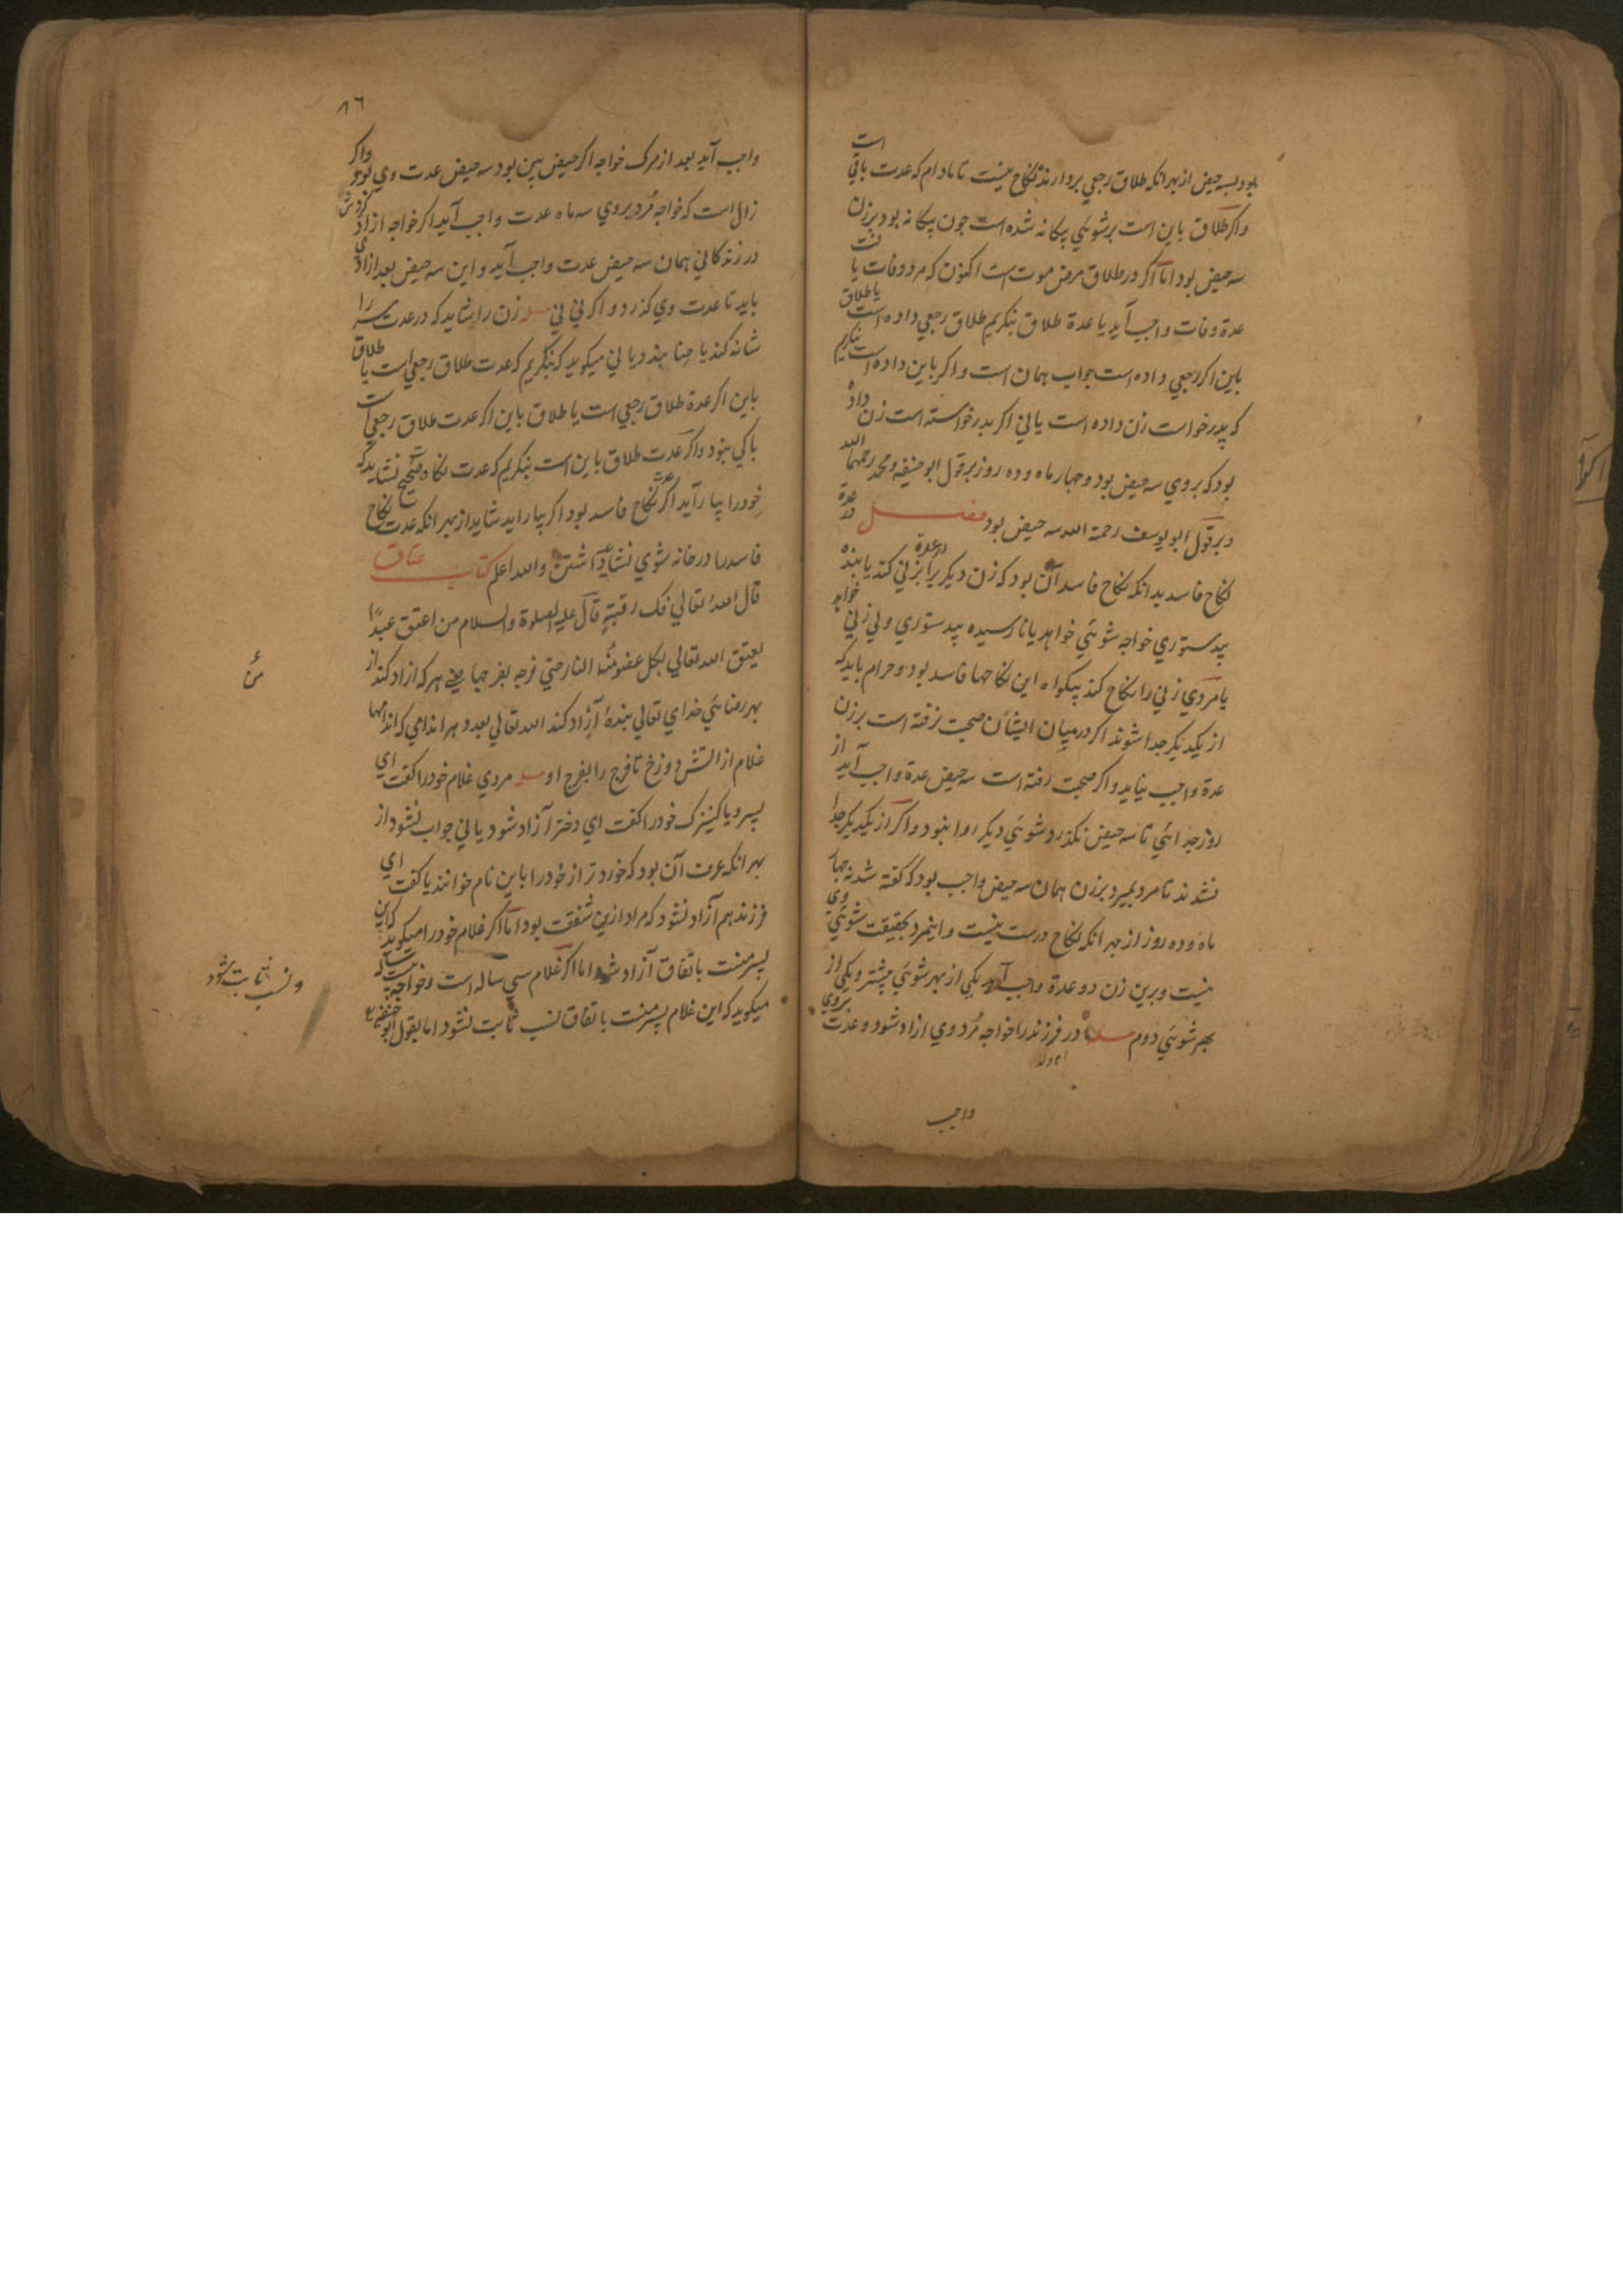 بود بسه حیض از بهر انکه طلاق رجعی بردارنده نکاح نیست تا مادام که عدت باقی است
واکر طلاق باین است بر شوئی بیکانه شده است جون بیکانه بود بر زن
سه حیض بود اما اکر در طلاق مرض موت است اکنون که مرد وفات یافت
عدة وفات واجب آید یا عدة طلاق بنکریم طلاق رجعی داده است یا طلاق
باین اکر رجعی داده است جواب همان است واکر باین داده است بنکریم
که بدرخواست زن داده است یا نی اکر بدرخواسته است زن داده
بود که بر وی سه حیض بود و جهار ماه و ده روز بر قول ابو حنیفه و محمد رحمهما الله
و بر قول ابو یوسف رحمة الله سه حیض بود فصل در عدة
نکاح فاسد بدانکه نکاح فاسد آن بود که زن دیکر را در عدة بزنی کند یا بنده
بیدستوری خواجه شوئی خواهد یا نارسیده بیدستوری ولی زنی خواهد
یا مردی زنی را نکاح کند بیکواه این نکاحها فاسد بود و حرام باید که
از یکدیکر جدا شوند اکر در میان ایشان صحبت نرفته است بر زن
عدة واجب نیاید واکر صحبت رفته است سه حیض عدة واجب آید از
روز جدائی تا سه حیض نکذرد شوئی دیکر روا نبود واکر از یکدیکر جدا
نشدند تا مرد بمیرد بر زن همان سه حیض واجب بود که کفته شد نه جهار
ماه و ده روز از بهر انکه نکاح درست نیست و اینمرد بحقیقت شوئی وی
نیست و برین زن دو عدة واجب آید یکی از بهر شوئی پیشتر و یکی از
بهر شوئی دوم مسله مادر فرزند را خواجه مرد وی ازاد شود و عدت بروی
ام ولد
واجب
۸۶
واجب آید بعد از مرک خواجه اکر حیض بین بود سه حیض عدت وی بود واکر
زال است که خواجه مرد بروی سه ماه عدت واجب آید اکر خواجه ازاد کردش
در زندکانی همان سه حیض عدت واجب آید و این سه حیض بعد ازادی
باید تا عدت وی کذرد و اکر نی نی مسله زن را شاید که در عدت سر را
شانه کند یا حنا بندد یا نی میکوید که بنکریم که عدت طلاق رجعی است یا طلاق
باین اکر عدة طلاق رجعی است یا طلاق باین اکر عدت طلاق رجعی است
باکی نبود واکر عدت طلاق باین است بنکریم که عدت نکاح صحیح است نشاید که
خود را بیاراید اکر عدت نکاح فاسد بود اکر بیاراید شاید از بهر انکه عدت نکاح
فاسد را در خانه شوی نشاید داشتن والله اعلم کتاب عتاق
قال الله تعالی فک رقبة قال علیه الصلوة والسلام من اعتق عبدا
یعتق الله تعالی بکل عضو منه من النار حتی فرجه بفرجها یعنی هر که ازاد کند از
بهر رضائی خدای تعالی بندهٔ آزاد کند الله تعالی بعدد هر اندامی که اندامها
غلام از اتش دوزخ تا فرج را بفرج او مسله مردی غلام خود را کفت ای
پسر و یا کنیزک خود را کفت ای دختر آزاد شود یا نی جواب نشود از
بهر انکه عرف آن بود که خوردتر از خود را باین نام خوانند یا کفت ای
فرزند هم آزاد نشود که مراد ازین شفقت بود اما اکر غلام خود را میکوید که این
پسر منست باتفاق آزاد شود اما اکر غلام سی ساله است و خواجه بیست ساله
میکوید که این غلام پسر منست باتفاق نسب ثابت نشود اما بقول ابو حنیفه
من
و نسب ثابت نشود